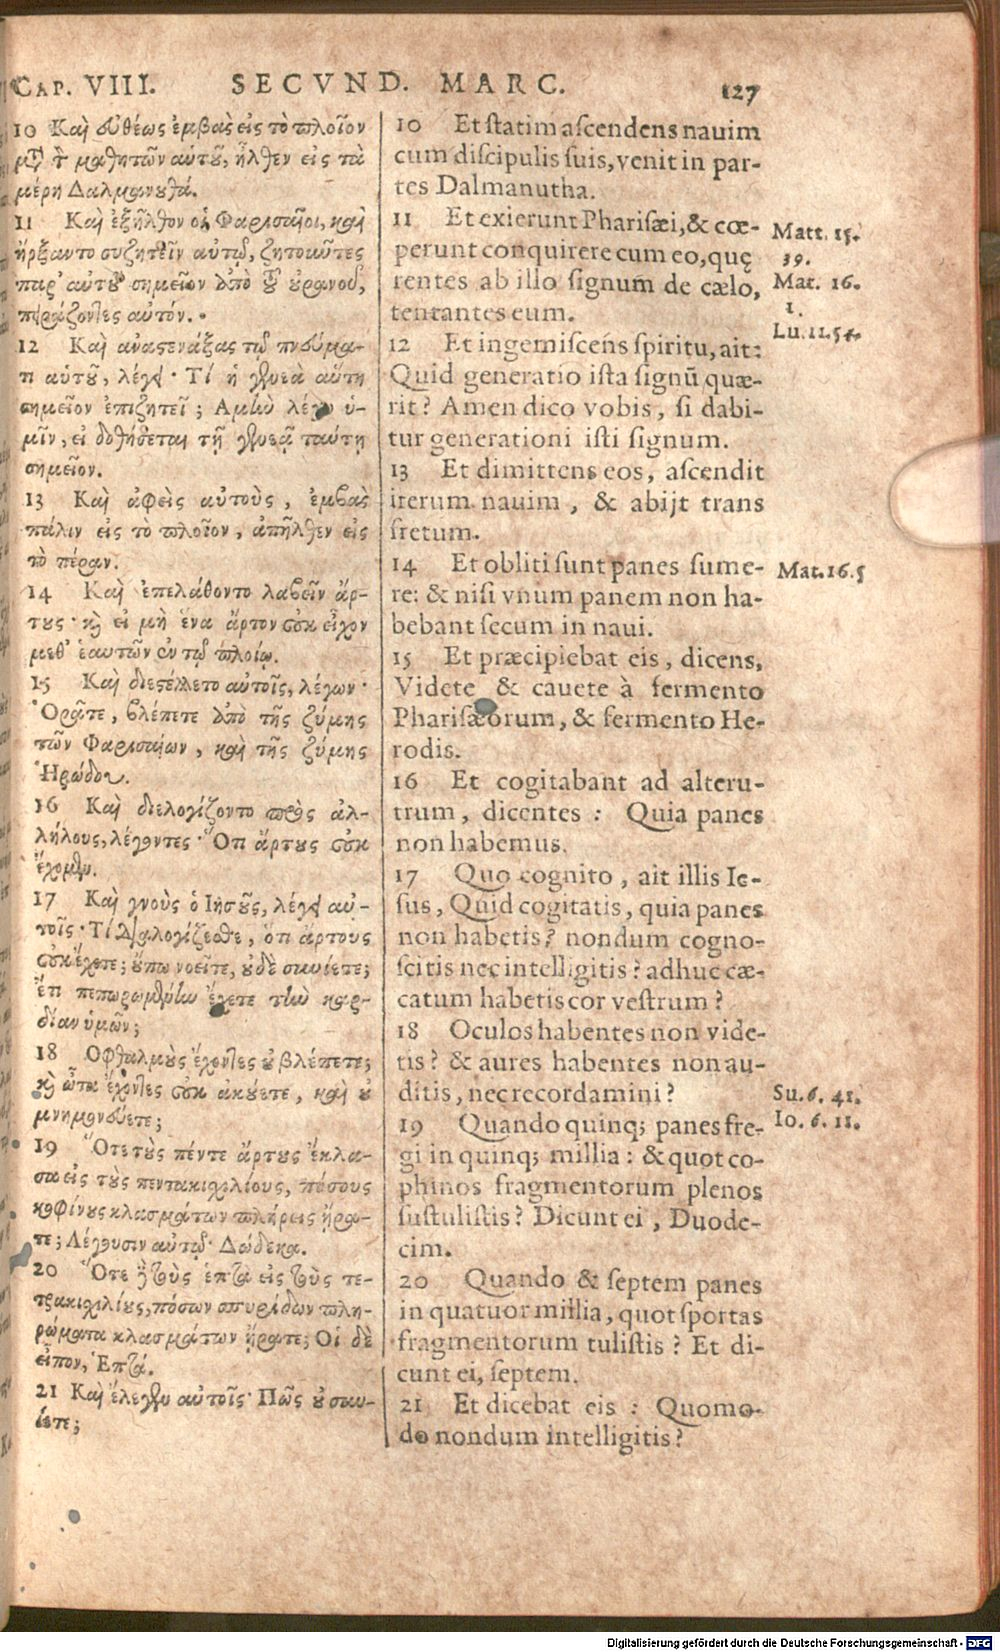 CAP. VIII. SECVND. MARC. 127
10 Καὶ εὐθέως ἐμβὰς εἰς τὸ πλοῖον
μετὰ τῶν μαθητῶν αὐτοῦ, ἦλθεν εἰς τὰ
μέρη Δαλμανουθά.
11 Καὶ ἐξῆλθον οἱ Φαρισαῖοι, καὶ
ἤρξαντο συζητεῖν αὐτῷ, ζητοῦντες
παρ' αὐτοῦ σημεῖον ἀπὸ τοῦ οὐρανοῦ,
πειράζοντες αὐτόν.
12 Καὶ ἀναστενάξας τῷ πνεύμα-
τι αὑτοῦ, λέγει· Τί ἡ γενεὰ αὕτη
σημεῖον ἐπιζητεῖ; Ἀμὴν λέγω ὑ-
μῖν, εἰ δοθήσεται τῇ γενεᾷ ταύτῃ
σημεῖον.
13 Καὶ ἀφεὶς αὐτοὺς, ἐμβὰς
πάλιν εἰς τὸ πλοῖον, ἀπῆλθεν εἰς
τὸ πέραν.
14 Καὶ ἐπελάθοντο λαβεῖν ἄρ-
τους· καὶ εἰ μὴ ἕνα ἄρτον οὐκ εἶχον
μεθ' ἑαυτῶν ἐν τῷ πλοίῳ.
15 Καὶ διεστέλλετο αὐτοῖς, λέγων·
Ὁρᾶτε, βλέπετε ἀπὸ τῆς ζύμης
τῶν Φαρισαίων, καὶ τῆς ζύμης
Ἡρώδου.
16 Καὶ διελογίζοντο πρὸς ἀλ-
λήλους, λέγοντες· Ὅτι ἄρτους οὐκ
ἔχομεν.
17 Καὶ γνοὺς ὁ Ἰησοῦς, λέγει αὐ-
τοῖς· Τί διαλογίζεσθε, ὅτι ἄρτους
οὐκ ἔχετε; οὔπω νοεῖτε, οὐδὲ συνίετε;
ἔτι πεπωρωμένην ἔχετε τὴν καρ-
δίαν ὑμῶν;
18 Ὀφθαλμοὺς ἔχοντες οὐ βλέπετε;
καὶ ὦτα ἔχοντες οὐκ ἀκούετε, καὶ οὐ
μνημονεύετε;
19 Ὅτε τοὺς πέντε ἄρτους ἔκλα-
σα εἰς τοὺς πεντακισχιλίους, πόσους
κοφίνους κλασμάτων πλήρεις ἤρα-
τε; Λέγουσιν αὐτῷ· Δώδεκα.
20 Ὅτε δὲ τοὺς ἑπτὰ εἰς τοὺς τε-
τρακισχιλίους, πόσων σπυρίδων πλη-
ρώματα κλασμάτων ἤρατε; Οἱ δὲ
εἶπον, Ἑπτά.
21 Καὶ ἔλεγεν αὐτοῖς· Πῶς οὐ συν-
ίετε;
10 Et statim ascendens nauim
cum discipulis suis, venit in par-
tes Dalmanutha.
11 Et exierunt Pharisæi, & cœ-
perunt conquirere cum eo, quę
rentes ab illo signum de cælo,
tentantes eum.
12 Et ingemiscens spiritu, ait:
Quid generatio ista signũ quæ-
rit? Amen dico vobis, si dabi-
tur generationi isti signum.
13 Et dimittens eos, ascendit
iterum nauim, & abijt trans
fretum.
14 Et obliti sunt panes sume-
re: & nisi vnum panem non ha-
bebant secum in naui.
15 Et præcipiebat eis, dicens,
Videte & cauete à fermento
Pharisæorum, & fermento He-
rodis.
16 Et cogitabant ad alteru-
trum, dicentes: Quia panes
non habemus.
17 Quo cognito, ait illis Ie-
sus, Quid cogitatis, quia panes
non habetis? nondum cogno-
scitis nec intelligitis? adhuc cæ-
catum habetis cor vestrum?
18 Oculos habentes non vide-
tis? & aures habentes non au-
ditis, nec recordamini?
19 Quando quinq; panes fre-
gi in quinq; millia: & quot co-
phinos fragmentorum plenos
sustulistis? Dicunt ei, Duode-
cim.
20 Quando & septem panes
in quatuor millia, quot sportas
fragmentorum tulistis? Et di-
cunt ei, septem.
21 Et dicebat eis: Quomo-
do nondum intelligitis?
Matt. 15.
39.
Mat. 16.
1.
Lu. 11. 54.
Mat. 16. 5
Su. 6. 41.
Io. 6. 11.
Digitalisierung gefördert durch die Deutsche Forschungsgemeinschaft - DFG